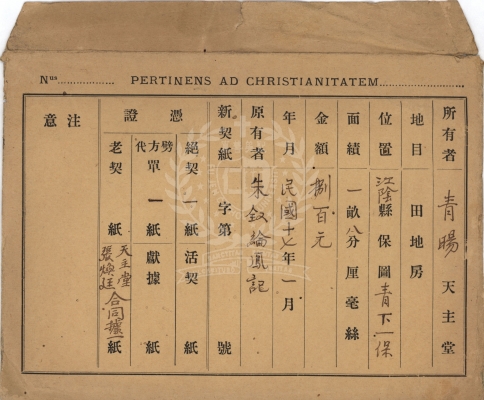 Nus PERTINENS AD CHRISTIANITATEM
所有者 青暘 天主堂
地目 田地房
位置 江陰縣保圖青下一保
面績 一畝八分厘毫絲
金額 捌百元
年月 民國十七年一月
原有者 朱叙論鳳記
新契紙 字第 號
憑證
絕契 一紙 活契 紙
劈方代單 一紙 獻據 紙
老契 紙 天主堂 張煥廷 合同據一紙
注意